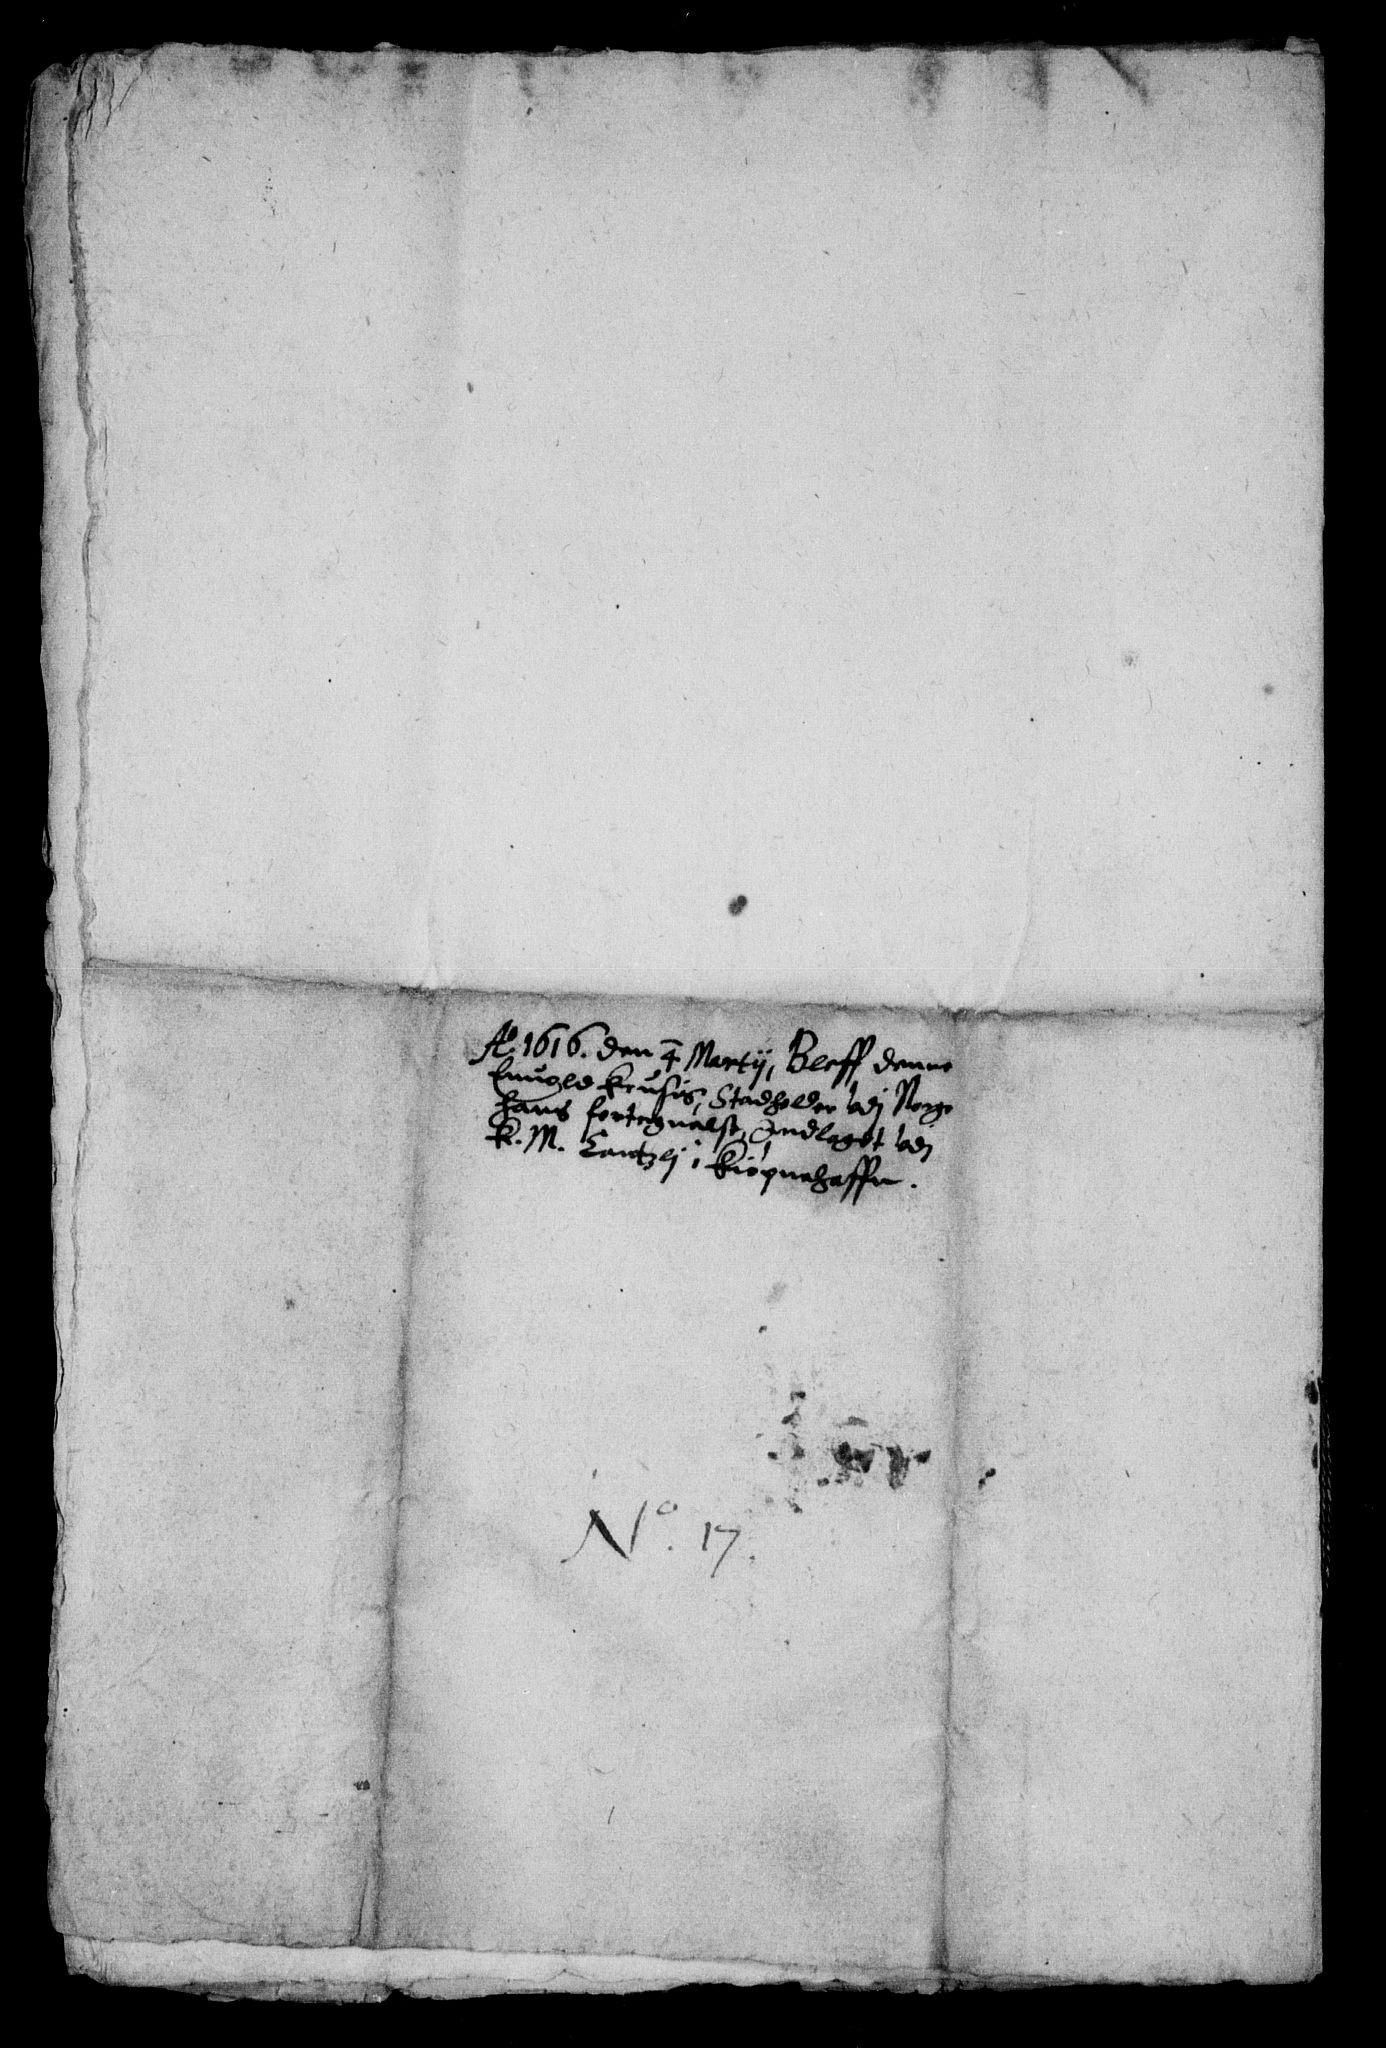 Ao. 1616. den 4 Martij, Bleff denne
Enuold Krusis, Stadholder vdj Norge
hans fortegnelse, Indlagt vdj
K. M. Cantzlj i Kiøpnehaffn.
No. 17.